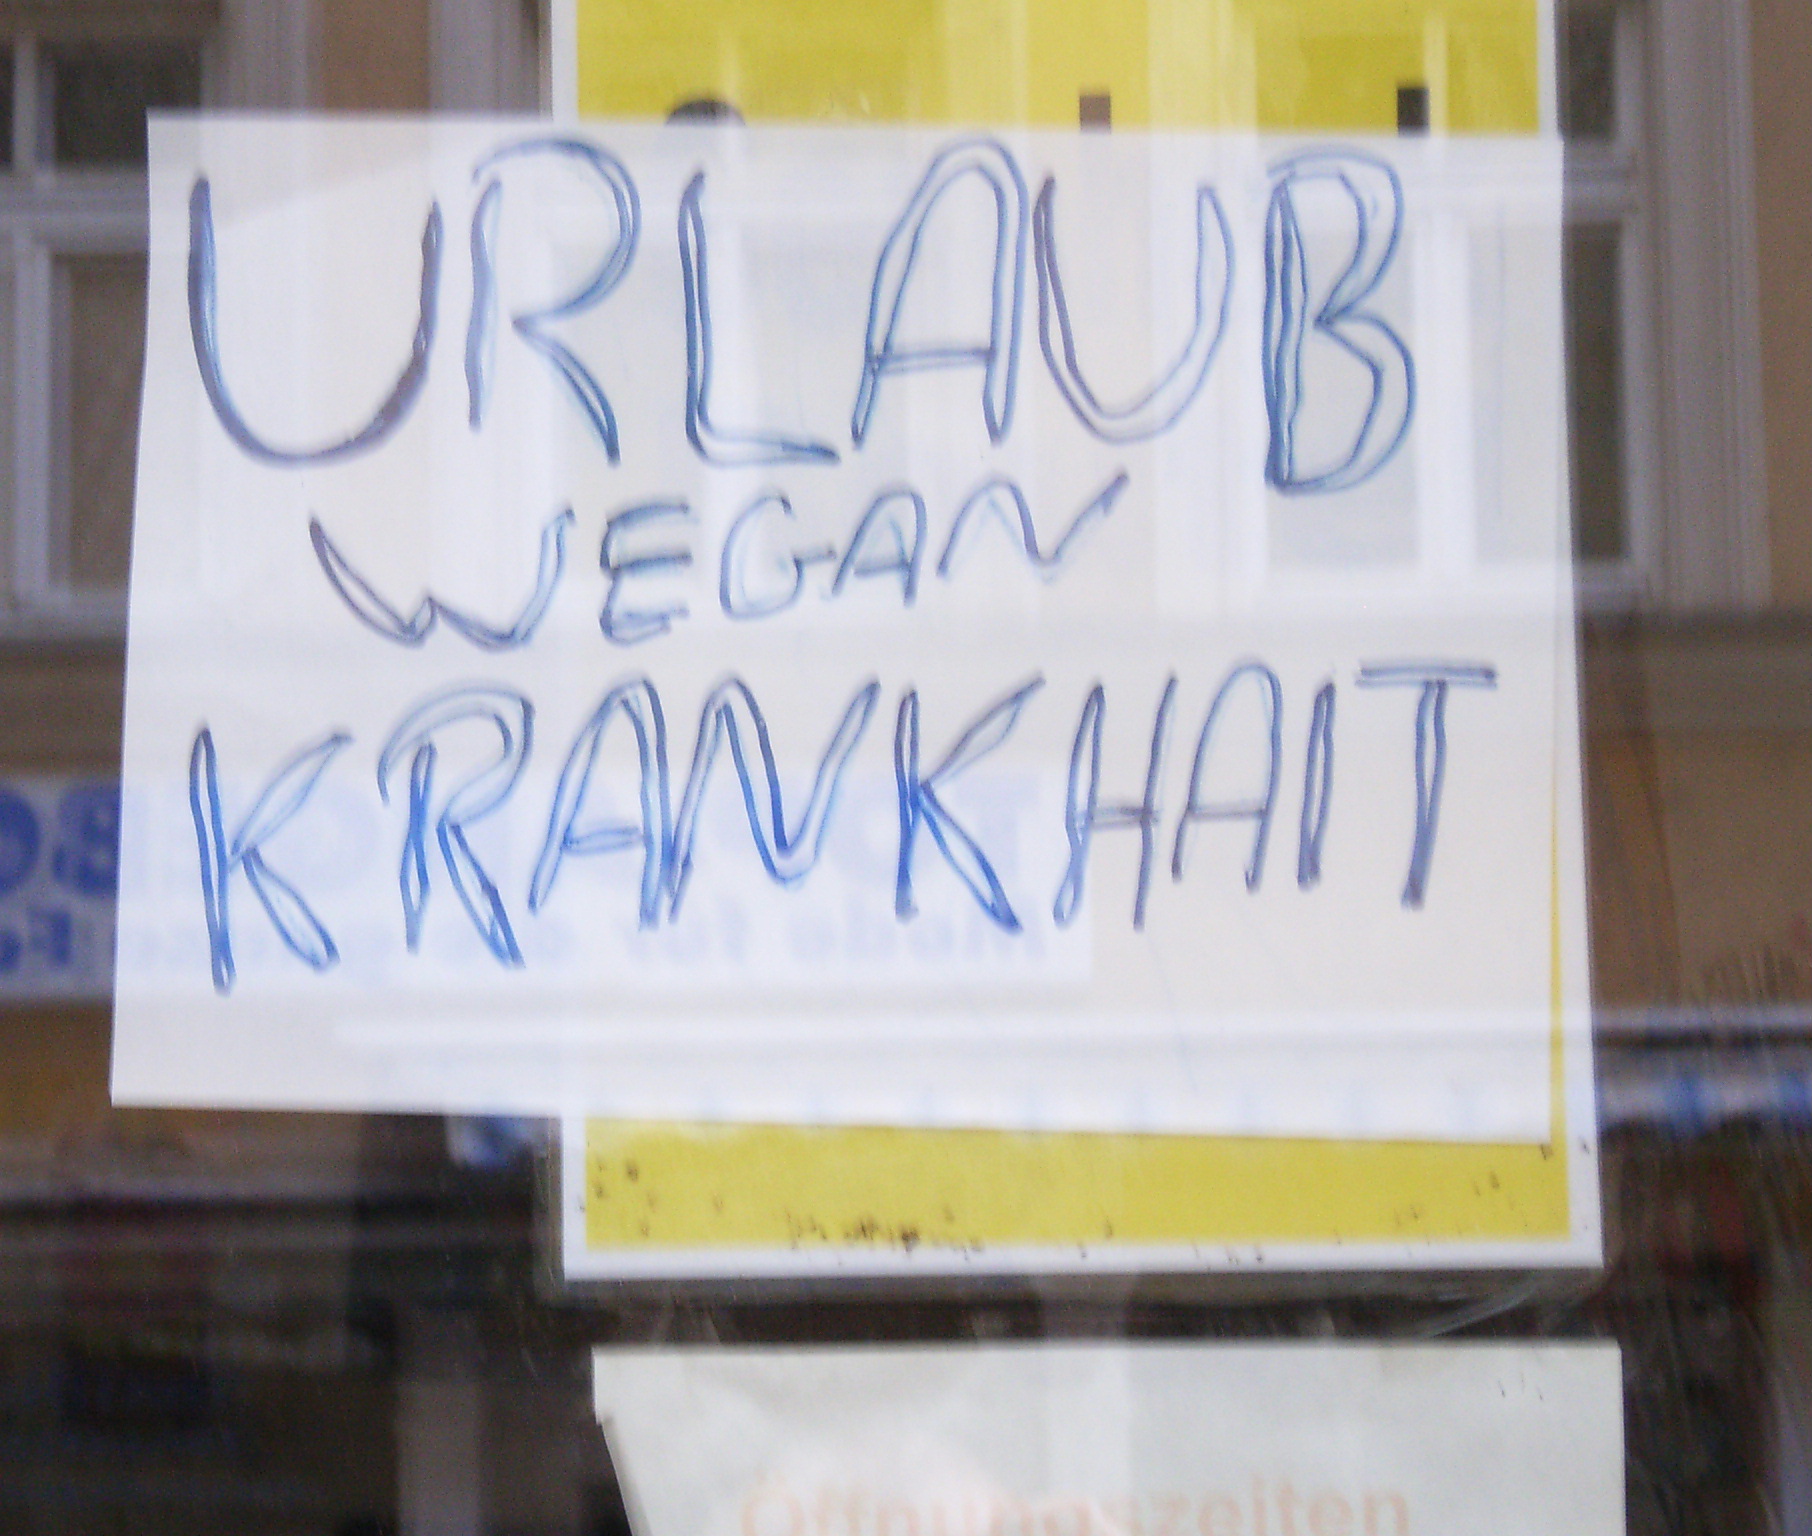 URLAUB
WEGAN
KRANKHAIT
Öffnungszeiten